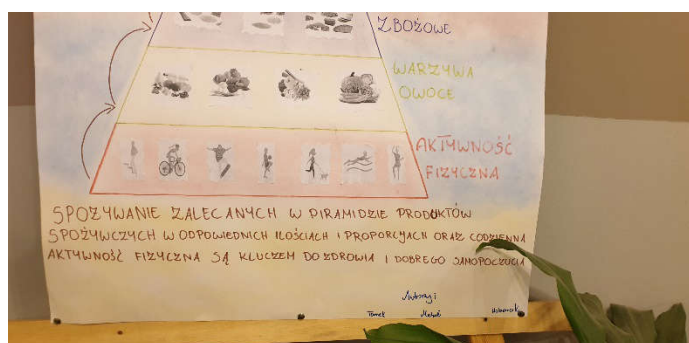 ZBOŻOWE
WARZYWA
OWOCE
AKTYWNOŚĆ
FIZYCZNA
SPOŻYWANIE ZALECANYCH W PIRAMIDZIE PRODUKTÓW
SPOŻYWCZYCH W ODPOWIEDNICH ILOŚCIACH I PROPORCJACH ORAZ CODZIENNA
AKTYWNOŚĆ FIZYCZNA SĄ KLUCZEM DO ZDROWIA I DOBREGO SAMOPOCZUCIA